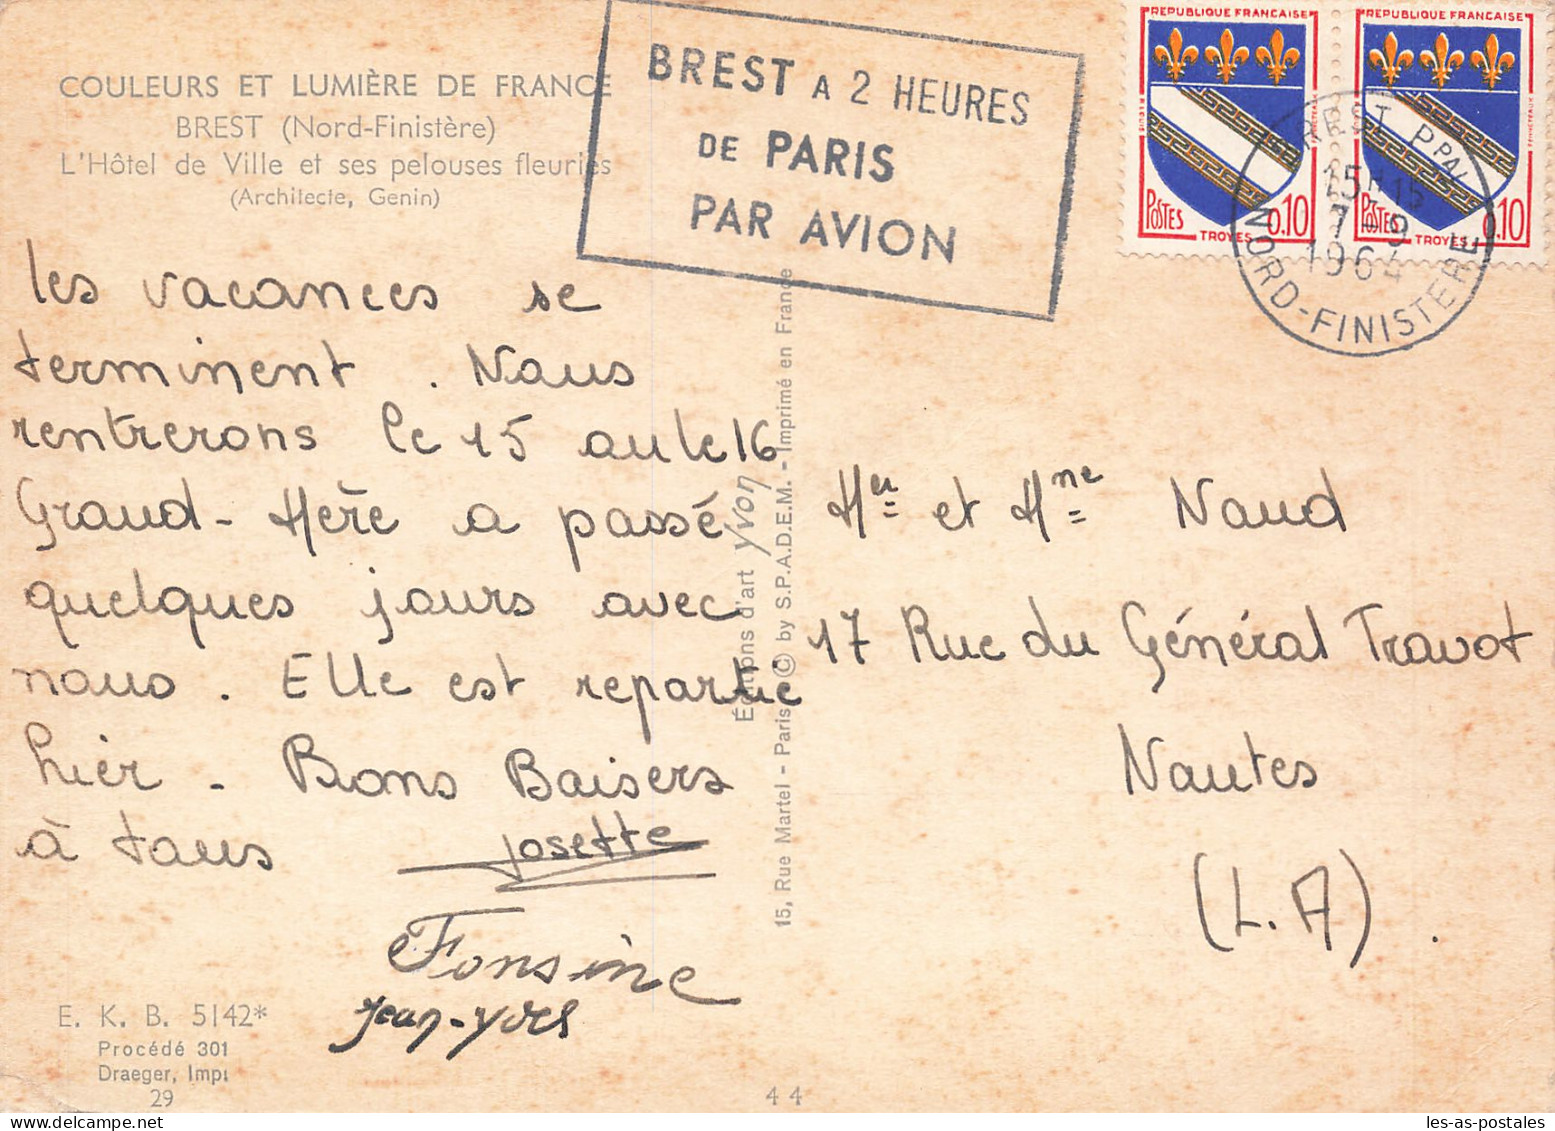 COULEURS ET LUMIÈRE DE FRANCE
BREST (Nord-Finistère)
L'Hôtel de Ville et ses pelouses fleuries
(Architecte, Genin)
BREST A 2 HEURES
DE PARIS
PAR AVION
REPUBLIQUE FRANCAISE
POSTES
0,10
TROYES
REPUBLIQUE FRANCAISE
POSTES
0,10
TROYES
BREST PPAL
15H15
7-9
1964
NORD-FINISTERE
les vacances se
terminent . Nous
rentrerons le 15 ou le 16
Grand-Mère a passé
quelques jours avec
nous . Elle est repartie
hier . Bons Baisers
à tous
Josette
Fonsine
Jean-Yves
Éditions d'art Yvon
15, Rue Martel - Paris © by S.P.A.D.E.M. - Imprimé en France
Mer et Mme Naud
17 Rue du Général Travot
Nantes
(L.A) .
E. K. B. 5142*
Procédé 301
Draeger, Imp.
29
44
les-as-postales